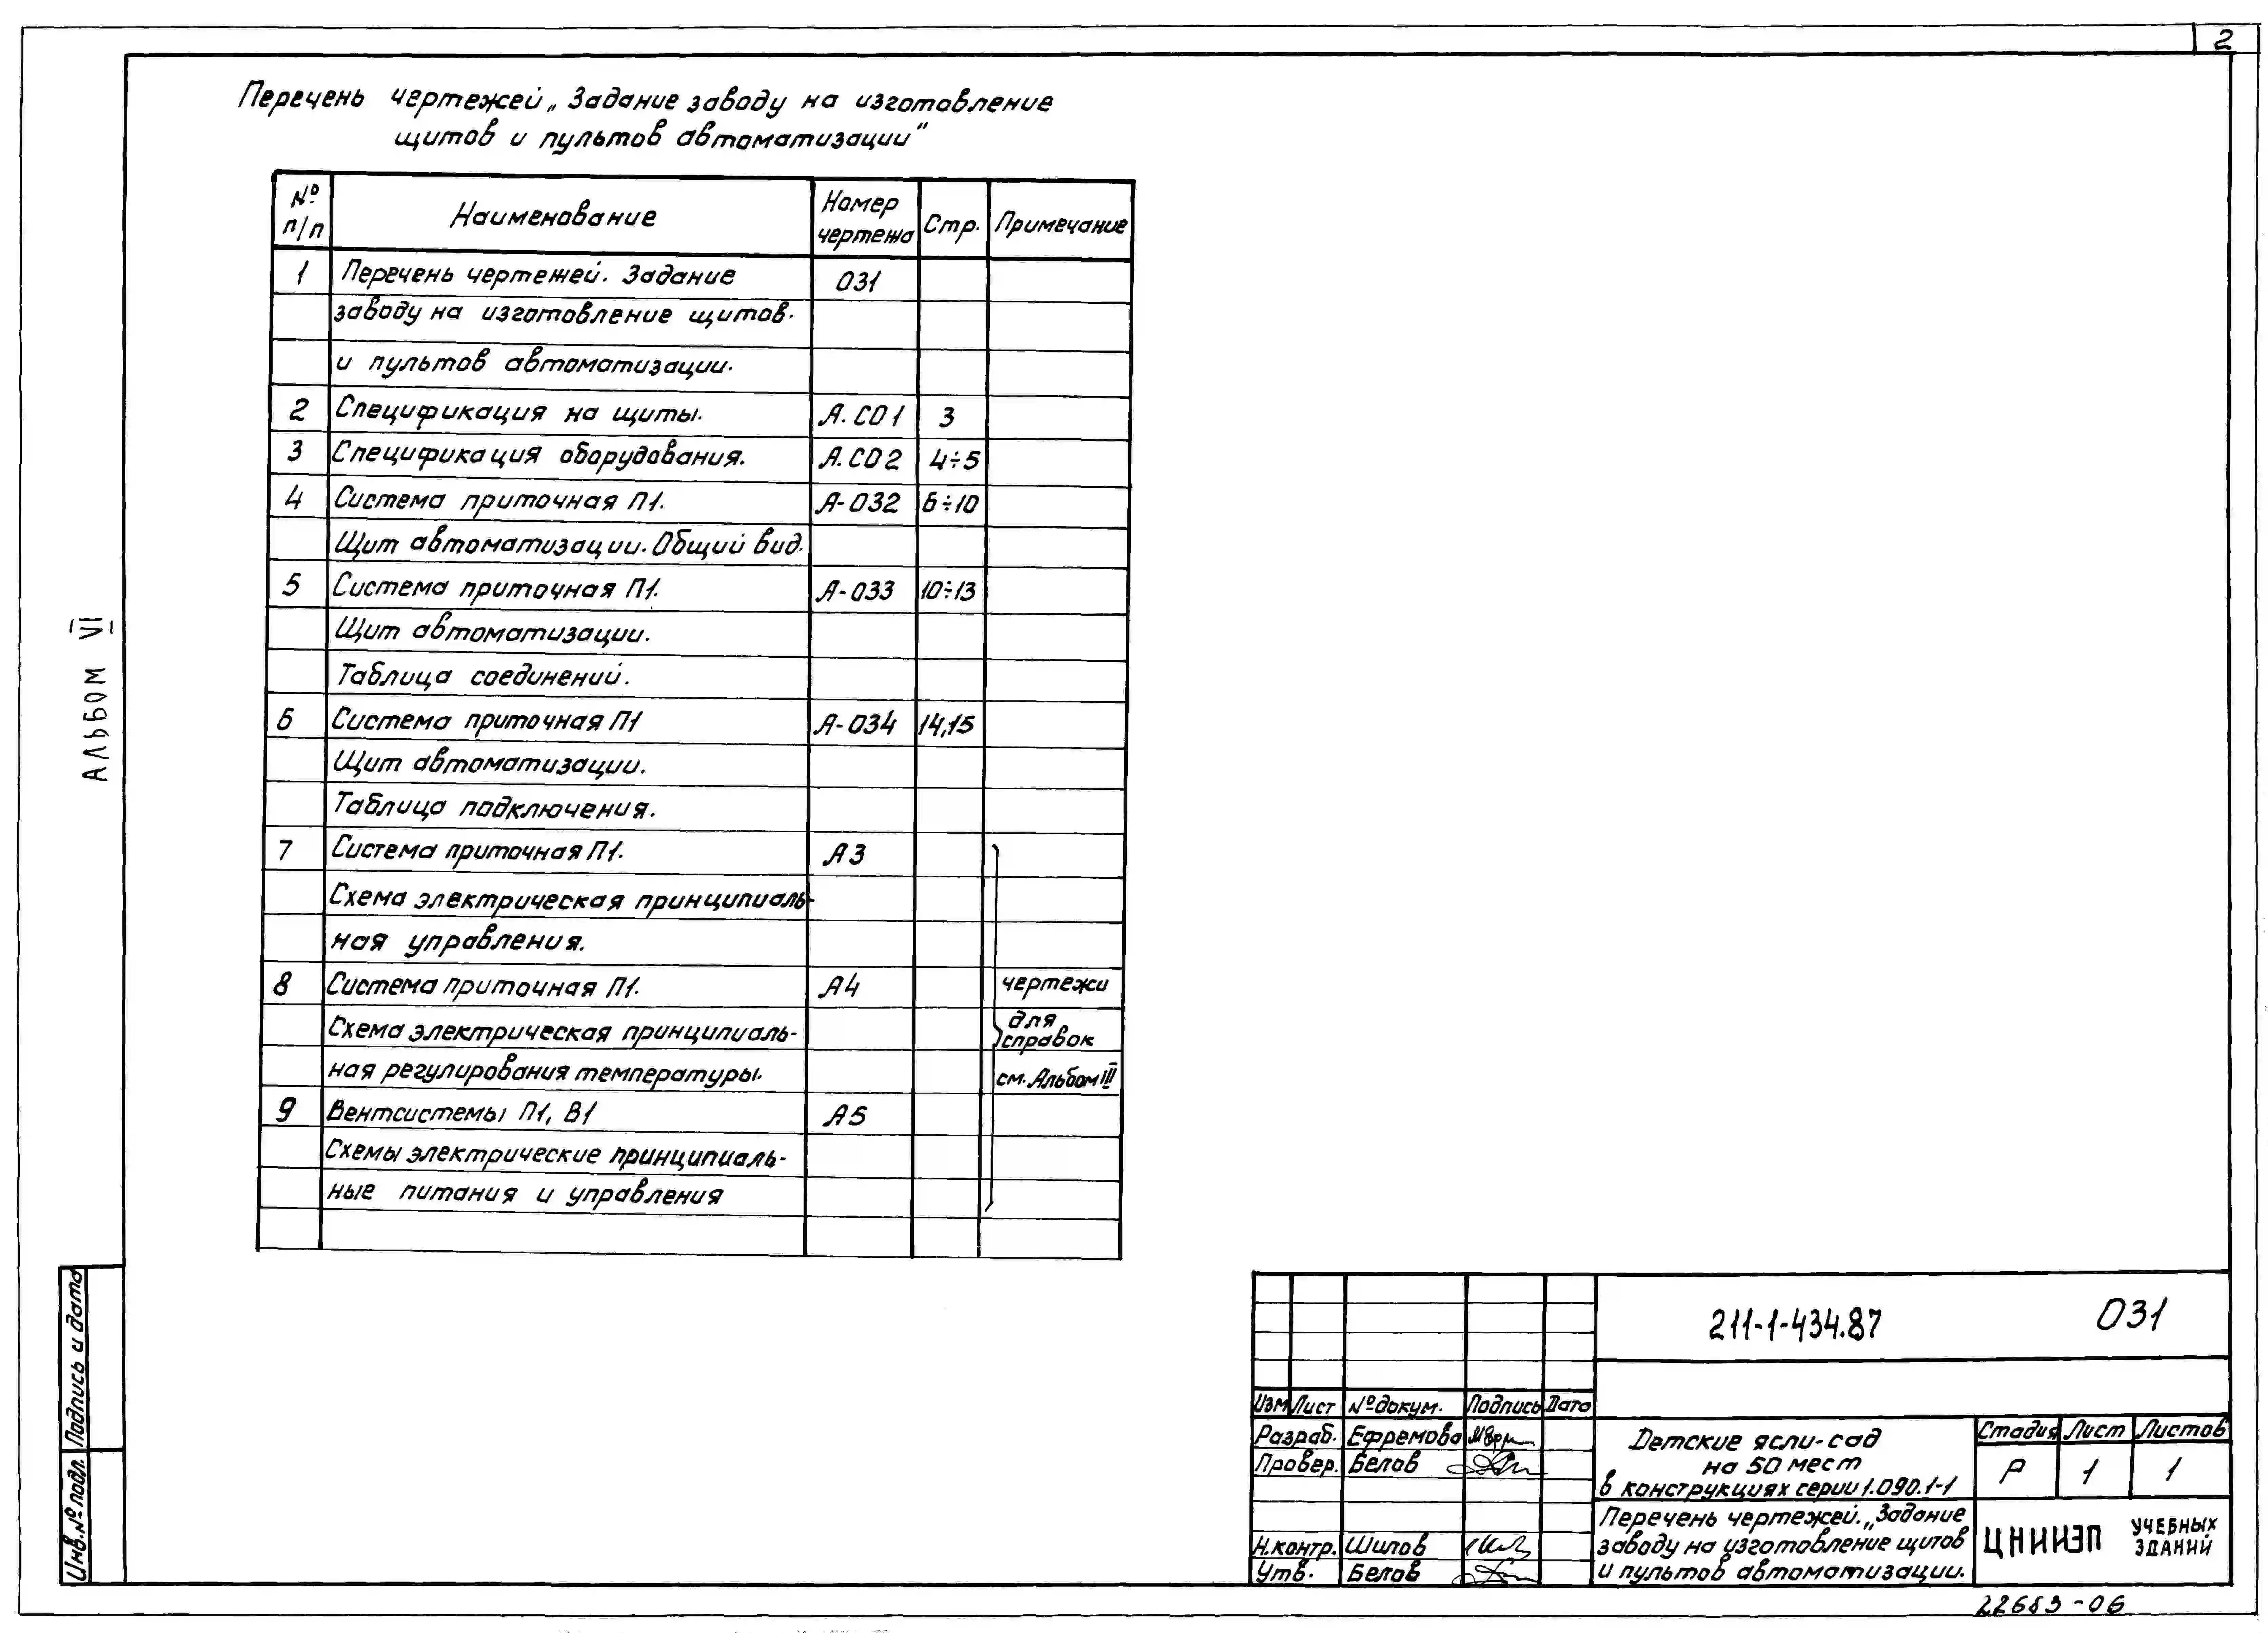 2
Перечень чертежей „Задание заводу на изготовление
щитов и пультов автоматизации"
№ п/п Наименование Номер чертежа Стр. Примечание
1 Перечень чертежей. Задание 031
заводу на изготовление щитов
и пультов автоматизации.
2 Спецификация на щиты. А.СО1 3
3 Спецификация оборудования. А.СО2 4÷5
4 Система приточная П1. А-032 6÷10
Щит автоматизации. Общий вид.
5 Система приточная П1. А-033 10÷13
Щит автоматизации.
Таблица соединений.
6 Система приточная П1 А-034 14,15
Щит автоматизации.
Таблица подключения.
7 Система приточная П1. А3
Схема электрическая принципиаль-
ная управления.
8 Система приточная П1. А4 чертежи
Схема электрическая принципиаль- для справок
ная регулирования температуры. см. Альбом III
9 Вентсистемы П1, В1 А5
Схемы электрические принципиаль-
ные питания и управления
АЛЬБОМ VI
Подпись и дата
Инв.№ подл.
211-1-434.87 031
Изм Лист № докум. Подпись Дата
Разраб. Ефремова
Провер. Белов
Н.контр. Шилов
Утв. Белов
Детские ясли-сад
на 50 мест
в конструкциях серии 1.090.1-1
Стадия Лист Листов
Р 1 1
Перечень чертежей. „Задание
заводу на изготовление щитов
и пультов автоматизации.
ЦНИИЭП УЧЕБНЫХ ЗДАНИЙ
22683-06